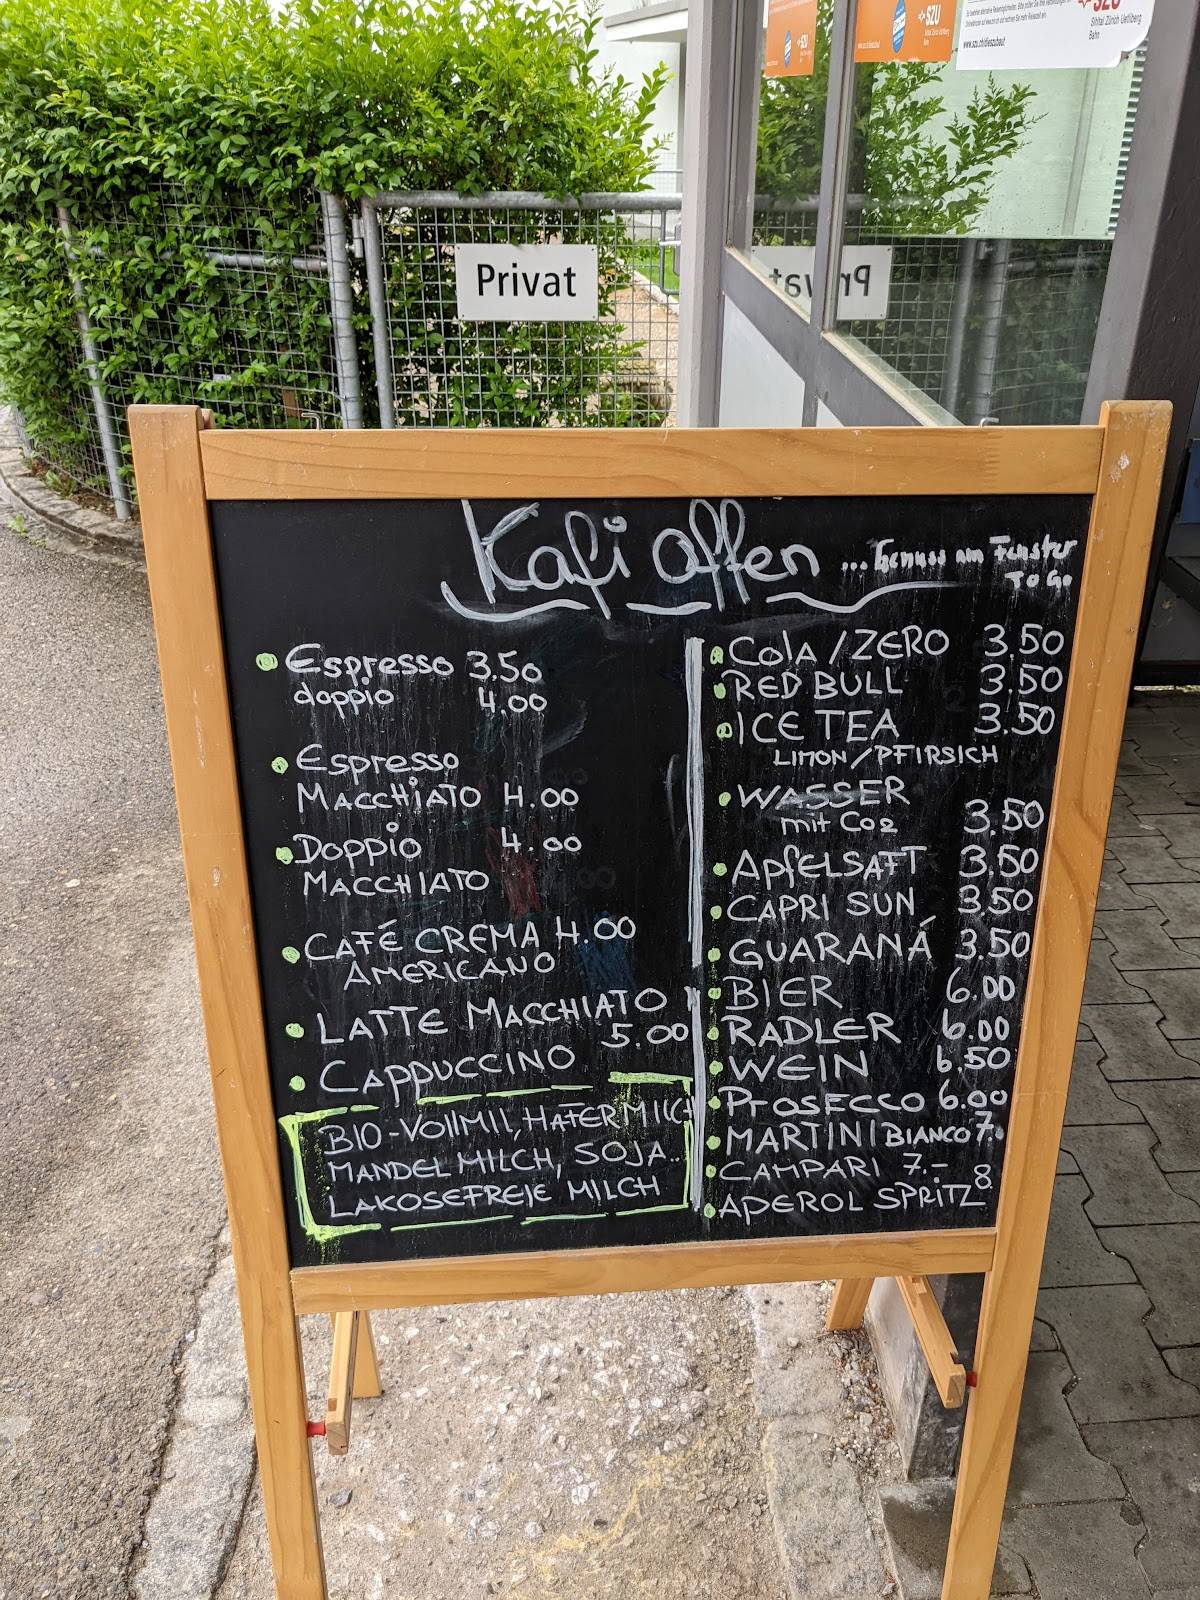 SZU
SZU
Bahn
www.szu.ch/dieszubaut
SZU
Sihltal Zürich Uetliberg
Bahn
Privat
Privat
Kafi offen ... Genuss am Fenster
To Go
Espresso 3.50
doppio 4.00
Espresso
MACCHiATO 4.00
Doppio 4.00
MACCHIATO
CAFÉ CREMA 4.00
AMERICANO
LATTE MACCHIATO
5.00
CAPPUCCINO
BIO-VOllMIL, HAFERMILCH
MANDELMILCH, SOJA..
LAKOSEFREIE MILCH
Cola/ZERO 3.50
RED BULL 3.50
ICE TEA 3.50
LIMON/PFIRSICH
WASSER
mit Co2 3.50
ApfelSAFT 3.50
CAPRI SUN 3.50
GUARANÁ 3.50
BIER 6.00
RADLER 6.00
WEIN 6.50
PROSECCO 6.00
MARTINI BIANCO 7.-
CAMPARI 7.-
APEROL SPRiTZ 8.